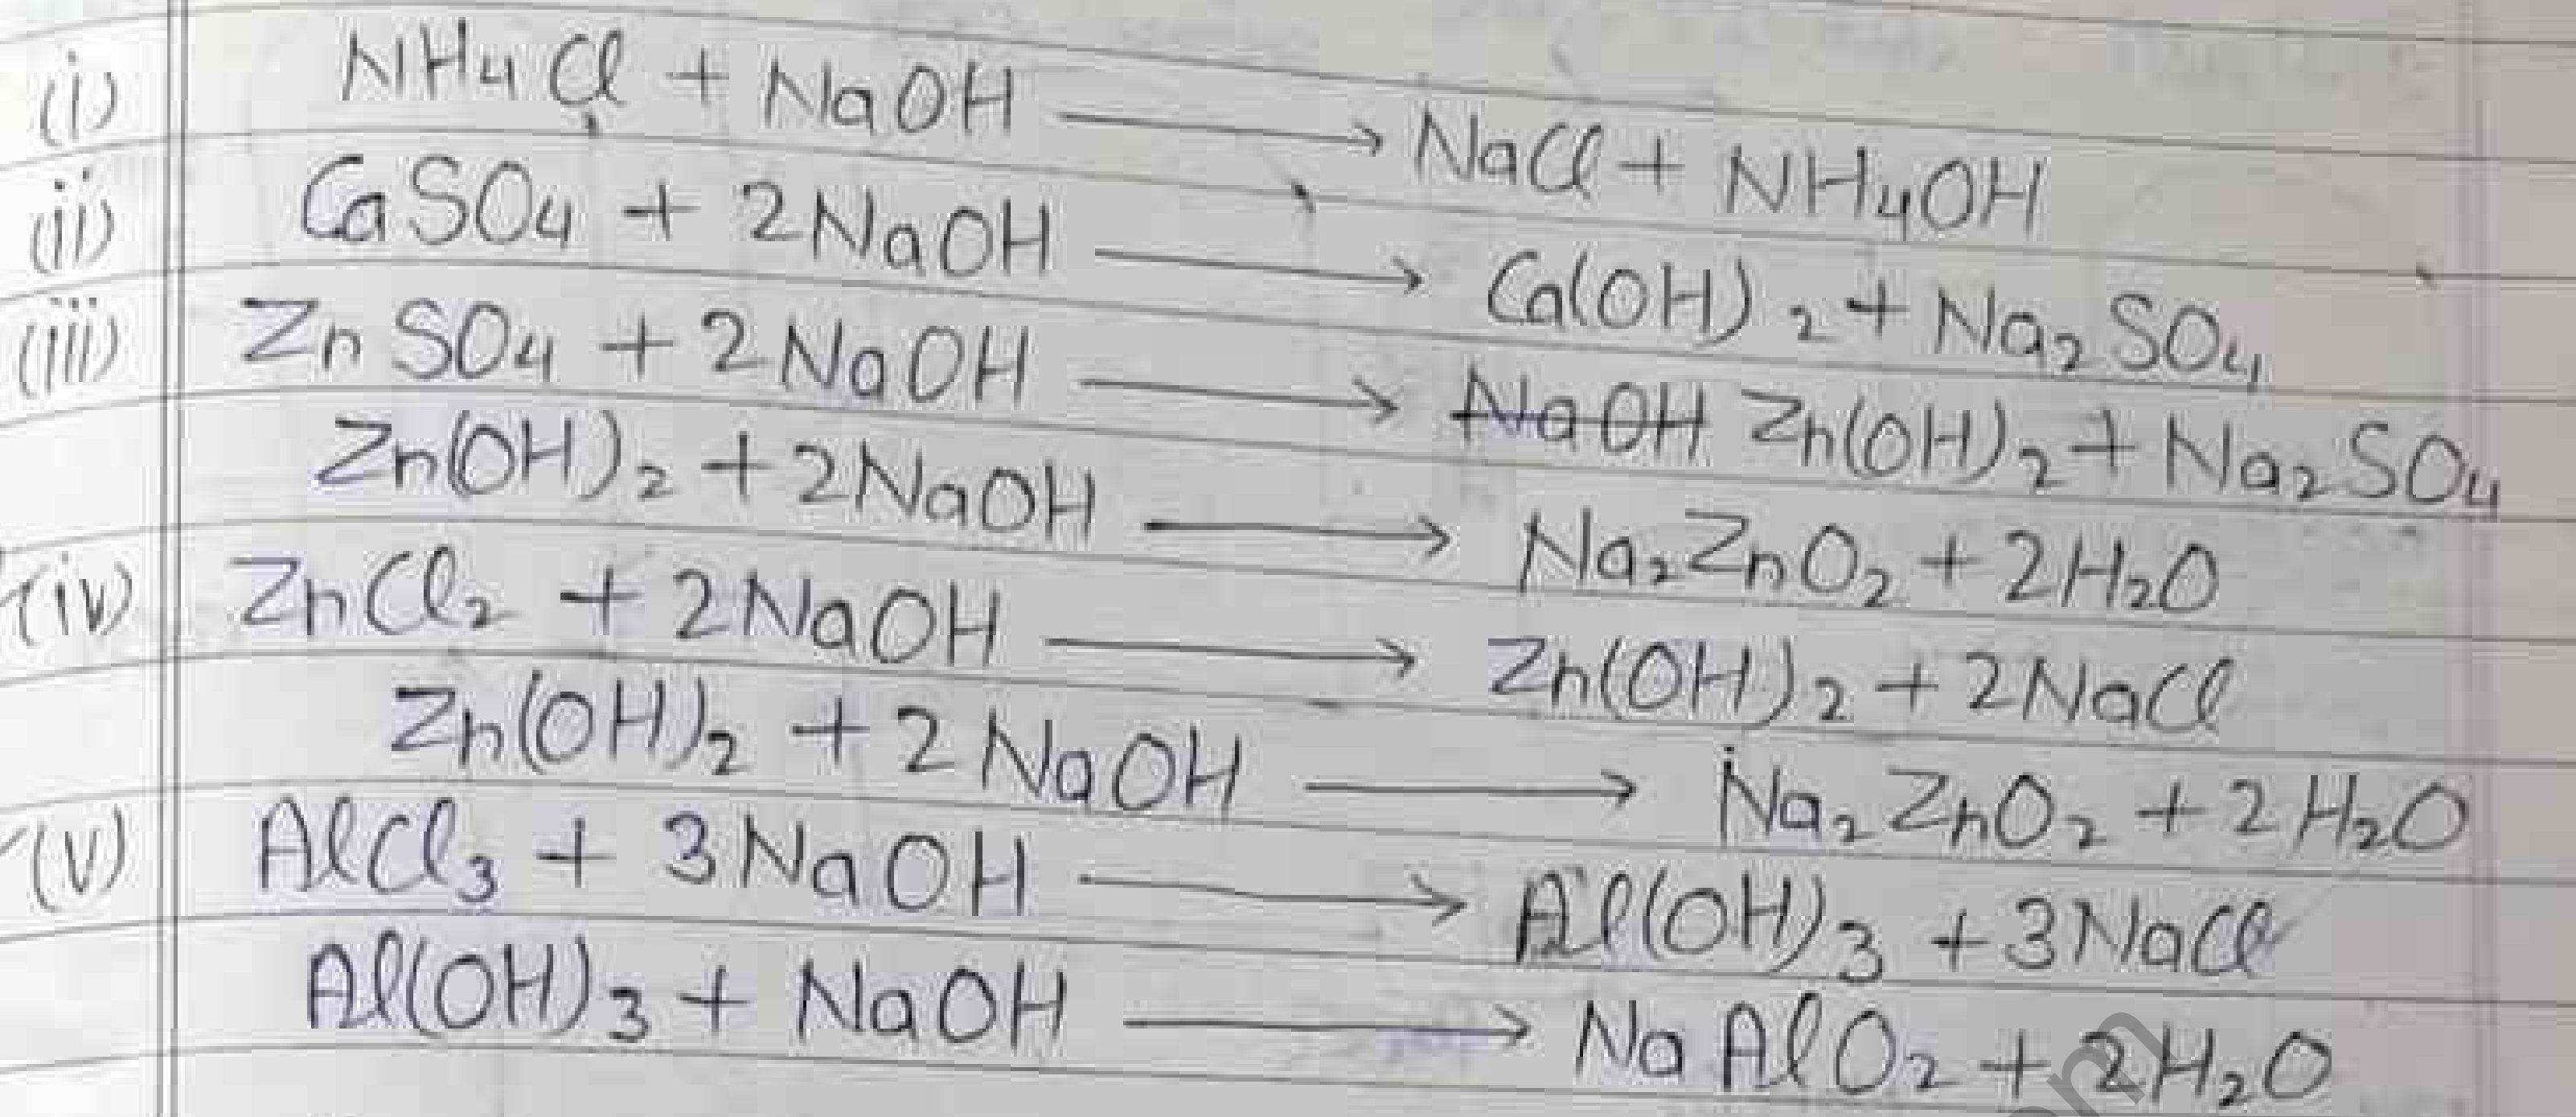 (i) NH4Cl + NaOH ⟶ NaCl + NH4OH
(ii) CaSO4 + 2NaOH ⟶ Ca(OH)2 + Na2SO4
(iii) ZnSO4 + 2NaOH ⟶ NaOH Zn(OH)2 + Na2SO4
Zn(OH)2 + 2NaOH ⟶ Na2ZnO2 + 2H2O
(iv) ZnCl2 + 2NaOH ⟶ Zn(OH)2 + 2NaCl
Zn(OH)2 + 2NaOH ⟶ Na2ZnO2 + 2H2O
(v) AlCl3 + 3NaOH ⟶ Al(OH)3 + 3NaCl
Al(OH)3 + NaOH ⟶ NaAlO2 + 2H2O